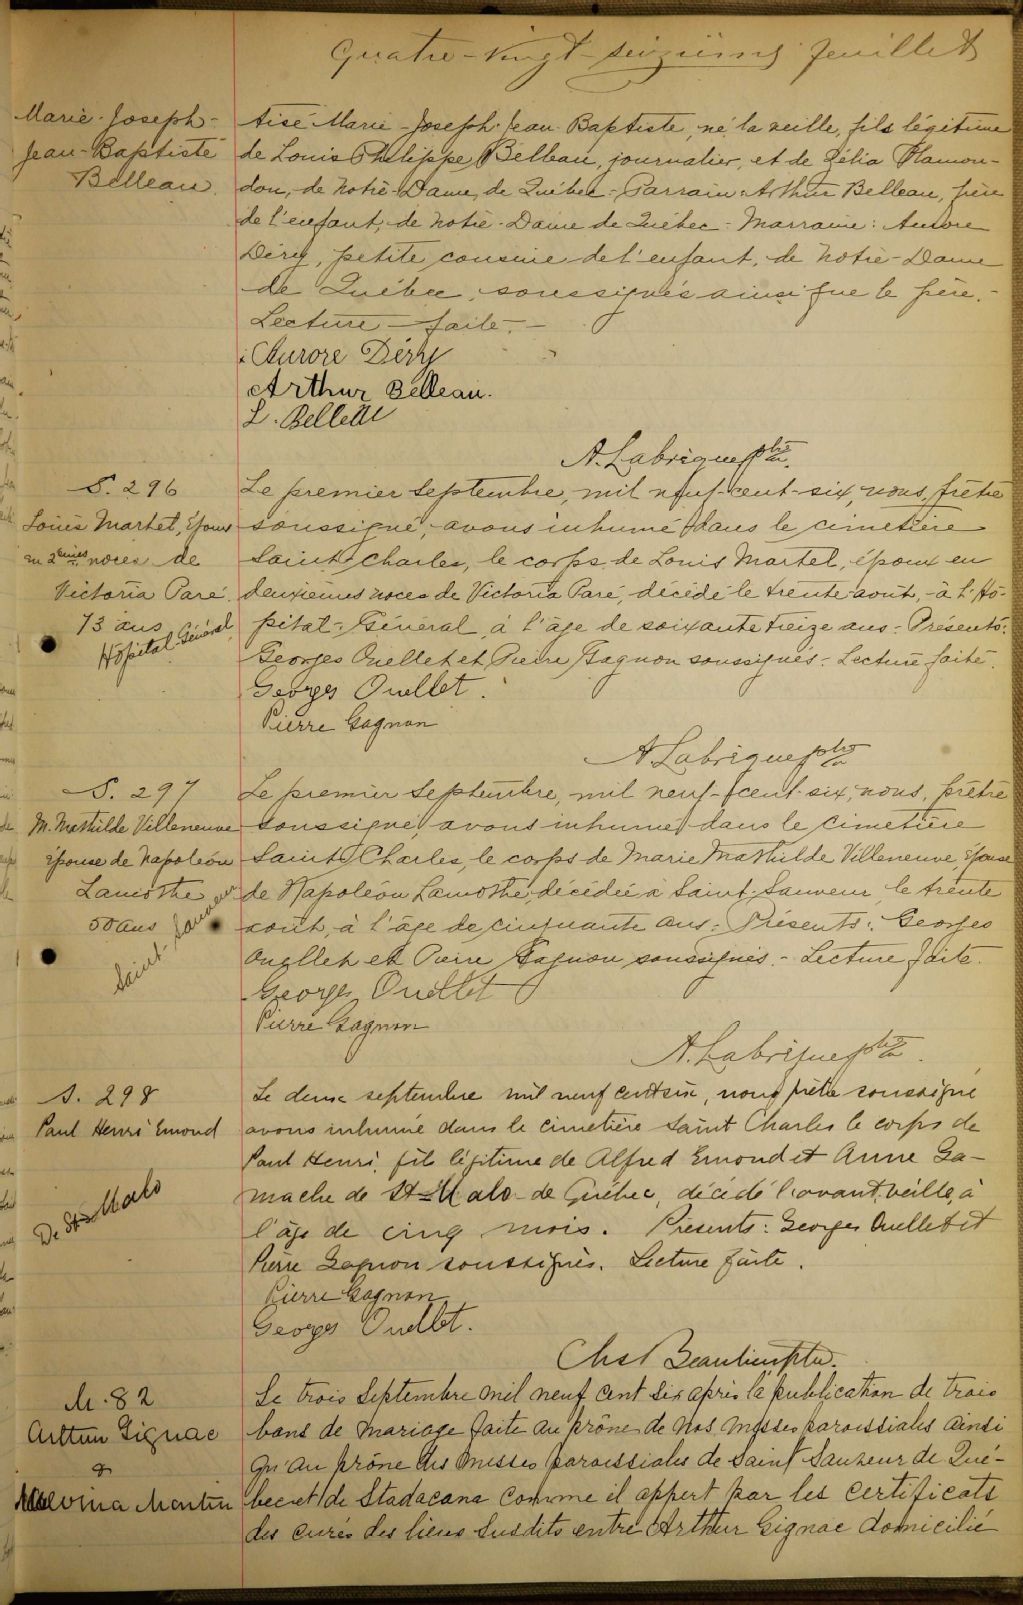 Quatre-vingt-seizième feuillet
Marie-Joseph-
Jean-Baptiste
Belleau.
tisé Marie-Joseph-Jean-Baptiste, né la veille, fils légitime
de Louis Philippe Belleau, journalier, et de Zélia Plamon-
don, de Notre-Dame, de Québec - Parrain: Arthur Belleau, frère
de l'enfant, de Notre-Dame de Québec - Marraine: Aurore
Déry, petite cousine de l'enfant, de Notre-Dame
de Québec, soussignés ainsi que le père.-
Lecture faite.-
Aurore Déry
Arthur Belleau.
L. Belleau
A. Labrèque ptre
S. 296
Louis Martel, Époux
en 2èmes noces de
Victoria Paré.
73 ans
Hôpital-Général
Le premier septembre, mil neuf-cent-six, nous, prêtre
soussigné, avons inhumé dans le cimetière
Saint-Charles, le corps de Louis Martel, époux en
deuxièmes noces de Victoria Paré, décédé le trente-août, à l'Hô-
pital-Général, à l'âge de soixante treize ans - Présents:
Georges Ouellet et Pierre Gagnon soussignés - Lecture faite.
Georges Ouellet.
Pierre Gagnon
A. Labrèque ptre
S. 297
M. Mathilde Villeneuve
épouse de Napoléon
Lamothe
50 ans
Saint-Sauveur
Le premier septembre, mil neuf-cent-six, nous, prêtre
soussigné, avons inhumé dans le cimetière
Saint-Charles, le corps de Marie Mathilde Villeneuve épouse
de Napoléon Lamothe, décédée à Saint-Sauveur, le trente
août, à l'âge de cinquante ans: Présents: Georges
Ouellet et Pierre Gagnon soussignés. - Lecture faite.
Georges Ouellet
Pierre Gagnon
A. Labrèque ptre.
S. 298
Paul Henri Emond
De St-Malo
Le deux septembre mil neuf cent six, nous prêtre soussigné
avons inhumé dans le cimetière Saint Charles le corps de
Paul Henri, fils légitime de Alfred Emond et Anne Ga-
mache de St-Malo de Québec, décédé l'avant veille, à
l'âge de cinq mois. Présents: Georges Ouellet et
Pierre Gagnon soussignés. Lecture faite.
Pierre Gagnon
Georges Ouellet.
Chs Beaulieu ptre.
M. 82
Arthur Gignac
&
Malvina Martin
Le trois Septembre mil neuf cent six après la publication de trois
bans de mariage faite au prône de nos messes paroissiales ainsi
qu'au prône des messes paroissiales de Saint Sauveur de Qué-
bec et de Stadacona comme il appert par les certificats
des curés des lieux susdits entre Arthur Gignac domicilié